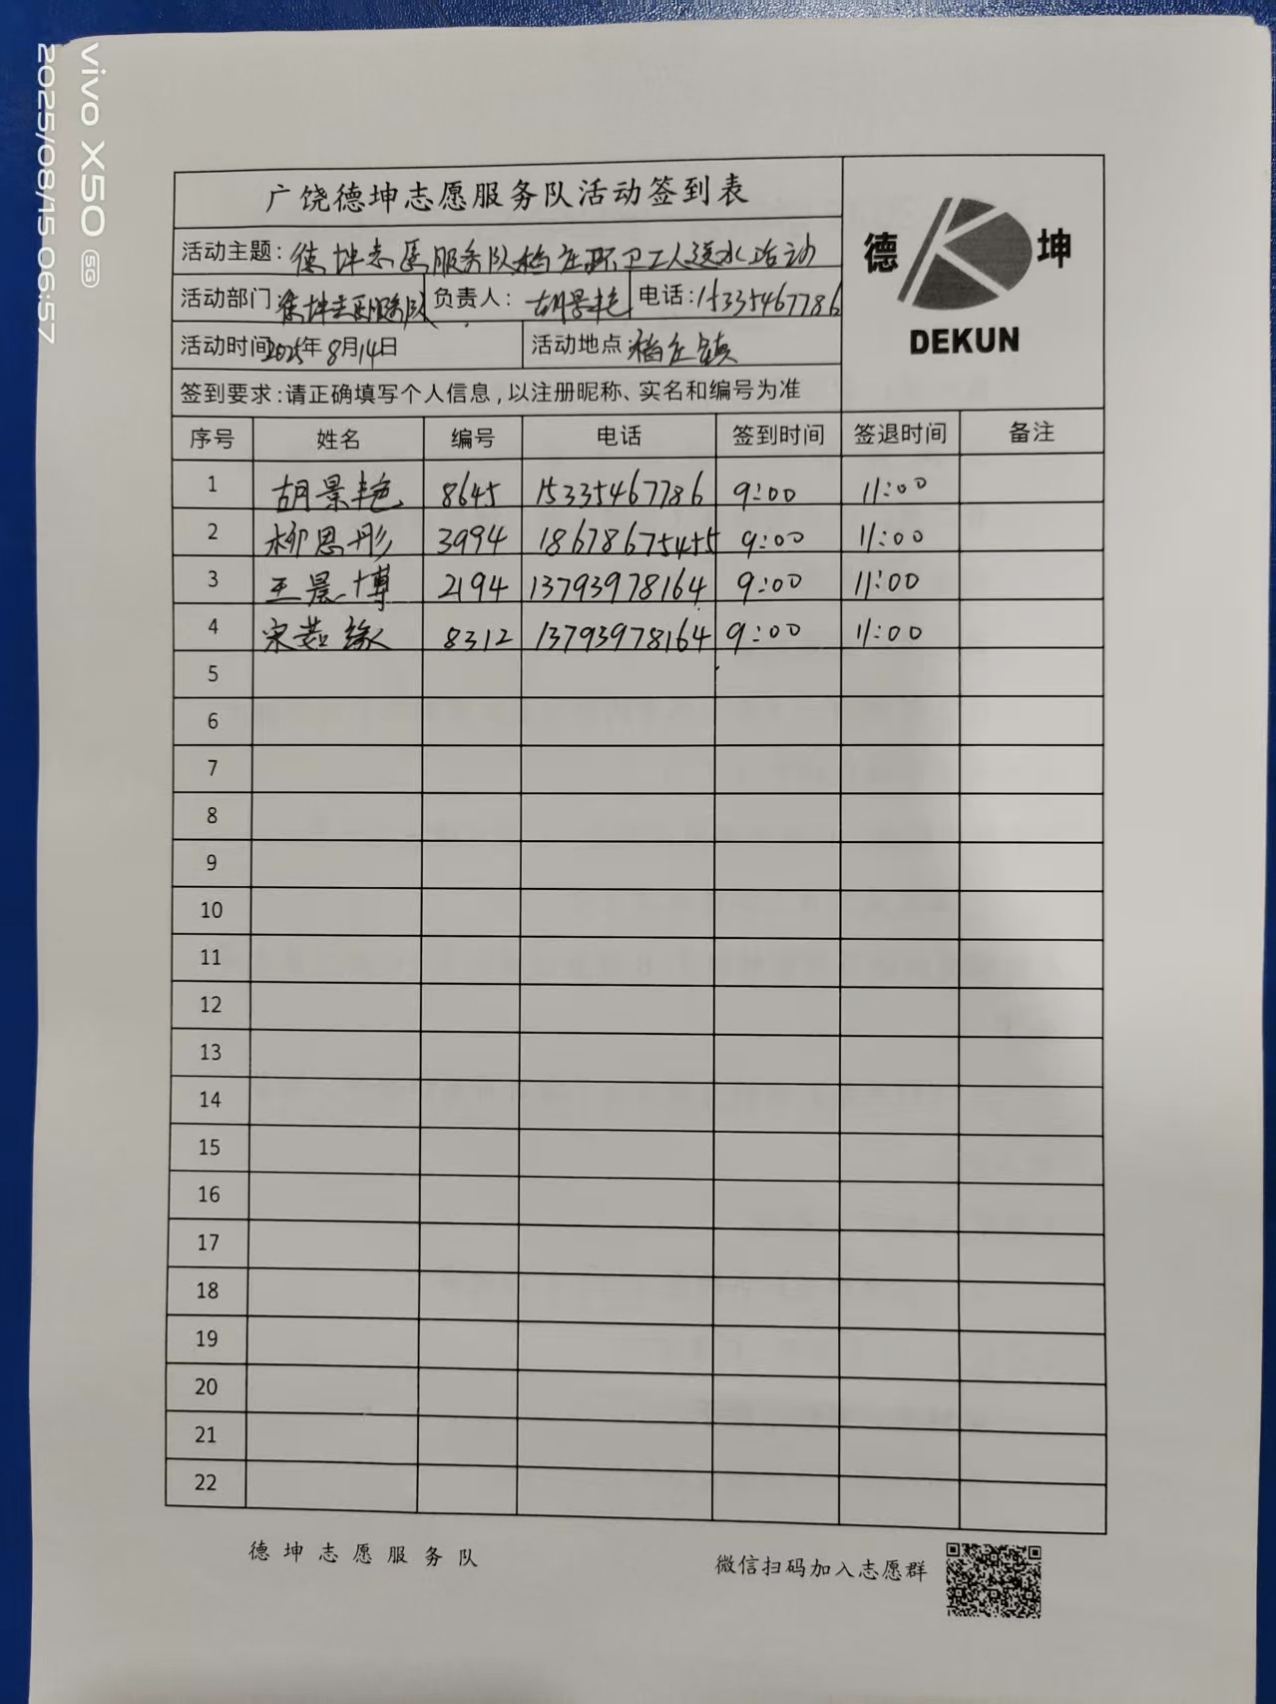 vivo X50 5G
2025/08/15 06:57
广饶德坤志愿服务队活动签到表
德 坤
DEKUN
活动主题: 德坤志愿服务队稻庄环卫工人送水活动
活动部门 德坤志愿服务队 负责人: 胡景艳 电话:15335467786
活动时间 2025年8月14日 活动地点 稻庄镇
签到要求:请正确填写个人信息,以注册昵称、实名和编号为准
序号 姓名 编号 电话 签到时间 签退时间 备注
1 胡景艳 8645 15335467786 9:00 11:00
2 柳恩彤 3994 18678675455 9:00 11:00
3 王晨博 2194 13793978164 9:00 11:00
4 宋茹缘 8312 13793978164 9:00 11:00
5
6
7
8
9
10
11
12
13
14
15
16
17
18
19
20
21
22
德坤志愿服务队 微信扫码加入志愿群